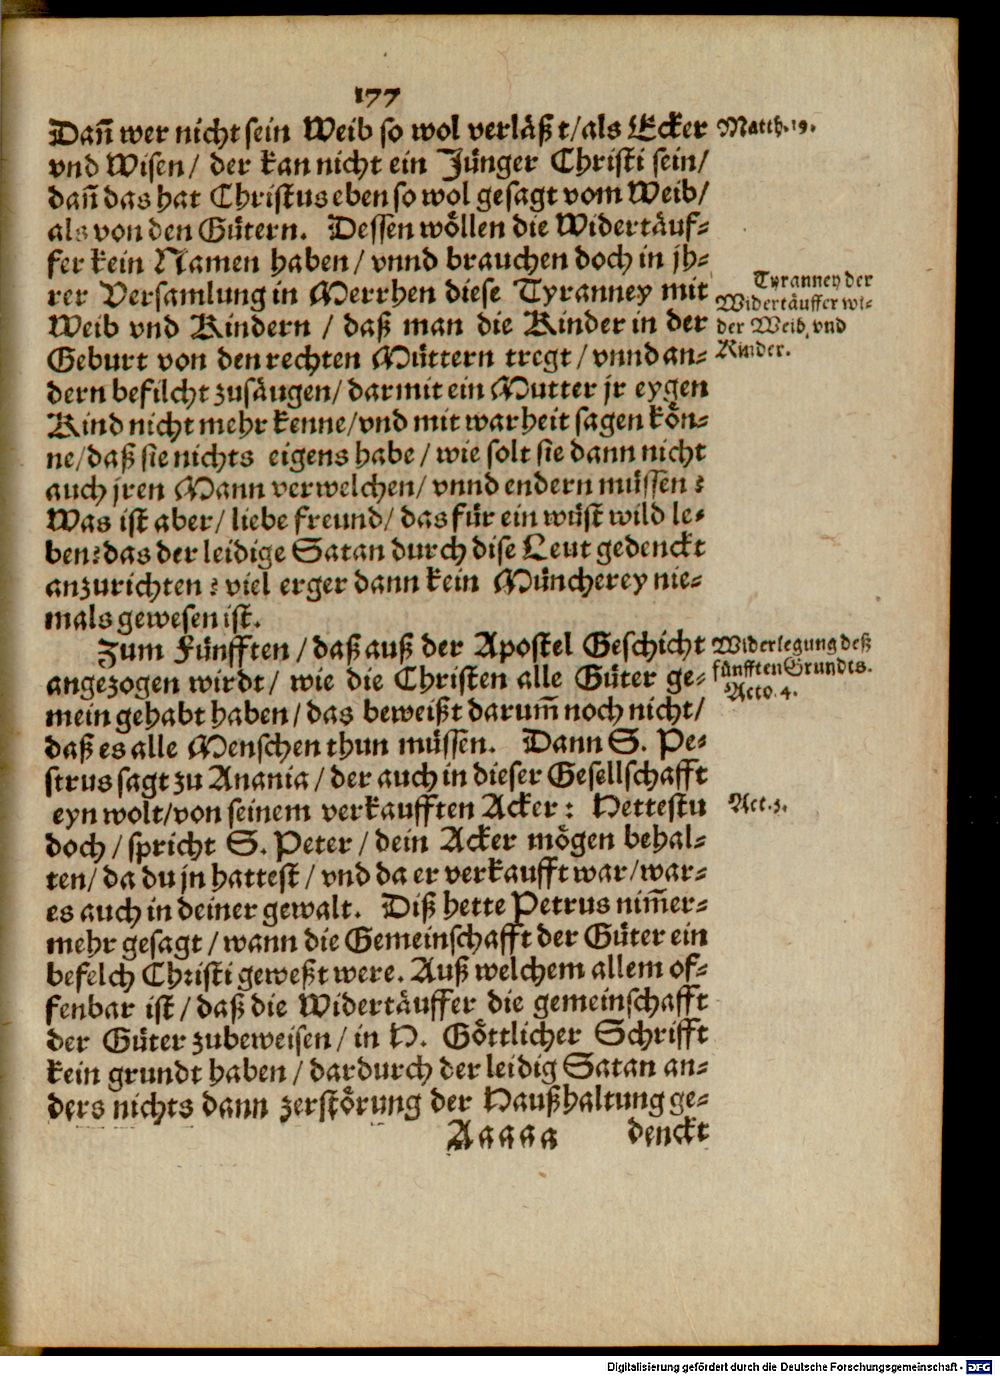 177
Dañ wer nicht sein Weib so wol verläßt/als Ecker
vnd Wisen/ der kan nicht ein Jünger Christi sein/
dañ das hat Christus eben so wol gesagt vom Weib/
als von den Gütern. Dessen wöllen die Widertäuf-
fer kein Namen haben/ vnnd brauchen doch in jh-
rer Versamlung in Merrhen diese Tyranney mit
Weib vnd Kindern / daß man die Kinder in der
Geburt von den rechten Müttern tregt/ vnnd an-
dern befilcht zusäugen/ darmit ein Mutter jr eygen
Kind nicht mehr kenne/vnd mit warheit sagen kön-
ne/daß sie nichts eigens habe/ wie solt sie dann nicht
auch jren Mann verwelchen/ vnnd endern müssen?
Was ist aber/ liebe freund/ das für ein wüst wild le-
ben? das der leidige Satan durch dise Leut gedenckt
anzurichten? viel erger dann kein Müncherey nie-
mals gewesen ist.
Zum Fünfften/ daß auß der Apostel Geschicht
angezogen wirdt/ wie die Christen alle Güter ge-
mein gehabt haben/ das beweißt darum̃ noch nicht/
daß es alle Menschen thun müssen. Dann S. Pe-
strus sagt zu Anania/ der auch in dieser Gesellschafft
eyn wolt/von seinem verkaufften Acker: Hettestu
doch/ spricht S. Peter/ dein Acker mögen behal-
ten/ da du jn hattest/ vnd da er verkaufft war/war-
es auch in deiner gewalt. Diß hette Petrus nim̃er-
mehr gesagt/ wann die Gemeinschafft der Güter ein
befelch Christi geweßt were. Auß welchem allem of-
fenbar ist/ daß die Widertäuffer die gemeinschafft
der Güter zubeweisen/ in H. Göttlicher Schrifft
kein grundt haben/ dardurch der leidig Satan an-
ders nichts dann zerstörung der Haußhaltung ge-
Aaaaa denckt
Matth. 19.
Tyranney der
Widertäuffer wi-
der Weib, vnd
Kinder.
Widerlegung deß
fünfften Grundts.
Acto. 4.
Act. 5.
Digitalisierung gefördert durch die Deutsche Forschungsgemeinschaft - DFG